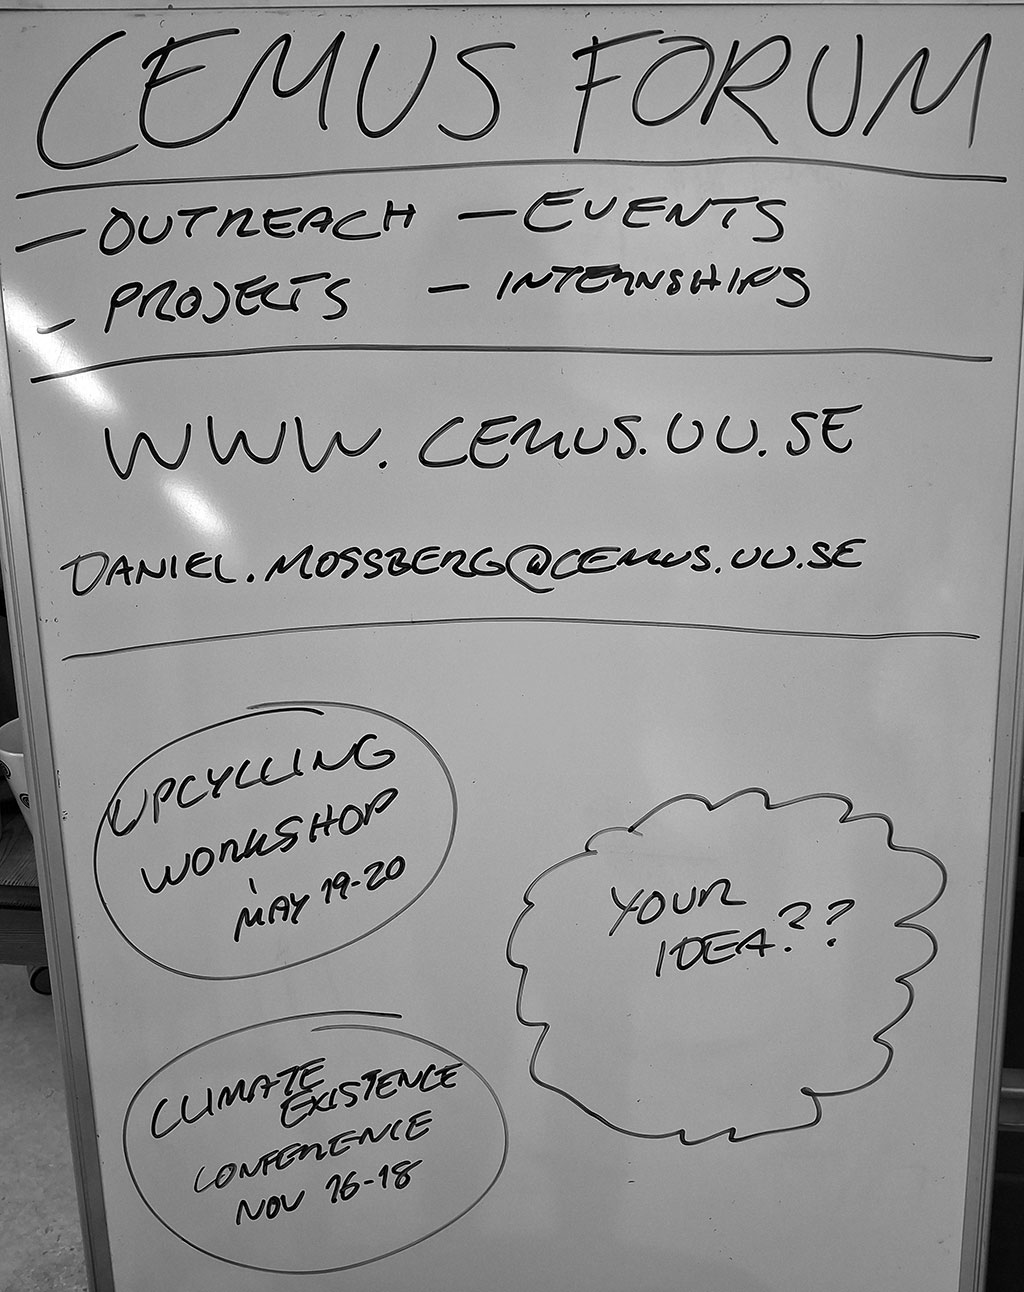 CEMUS FORUM
- OUTREACH - EVENTS
- PROJECTS - INTERNSHIPS
WWW.CEMUS.UU.SE
DANIEL.MOSSBERG@CEMUS.UU.SE
UPCYCLING
WORKSHOP
MAY 19-20
YOUR
IDEA??
CLIMATE
EXISTENCE
CONFERENCE
NOV 16-18